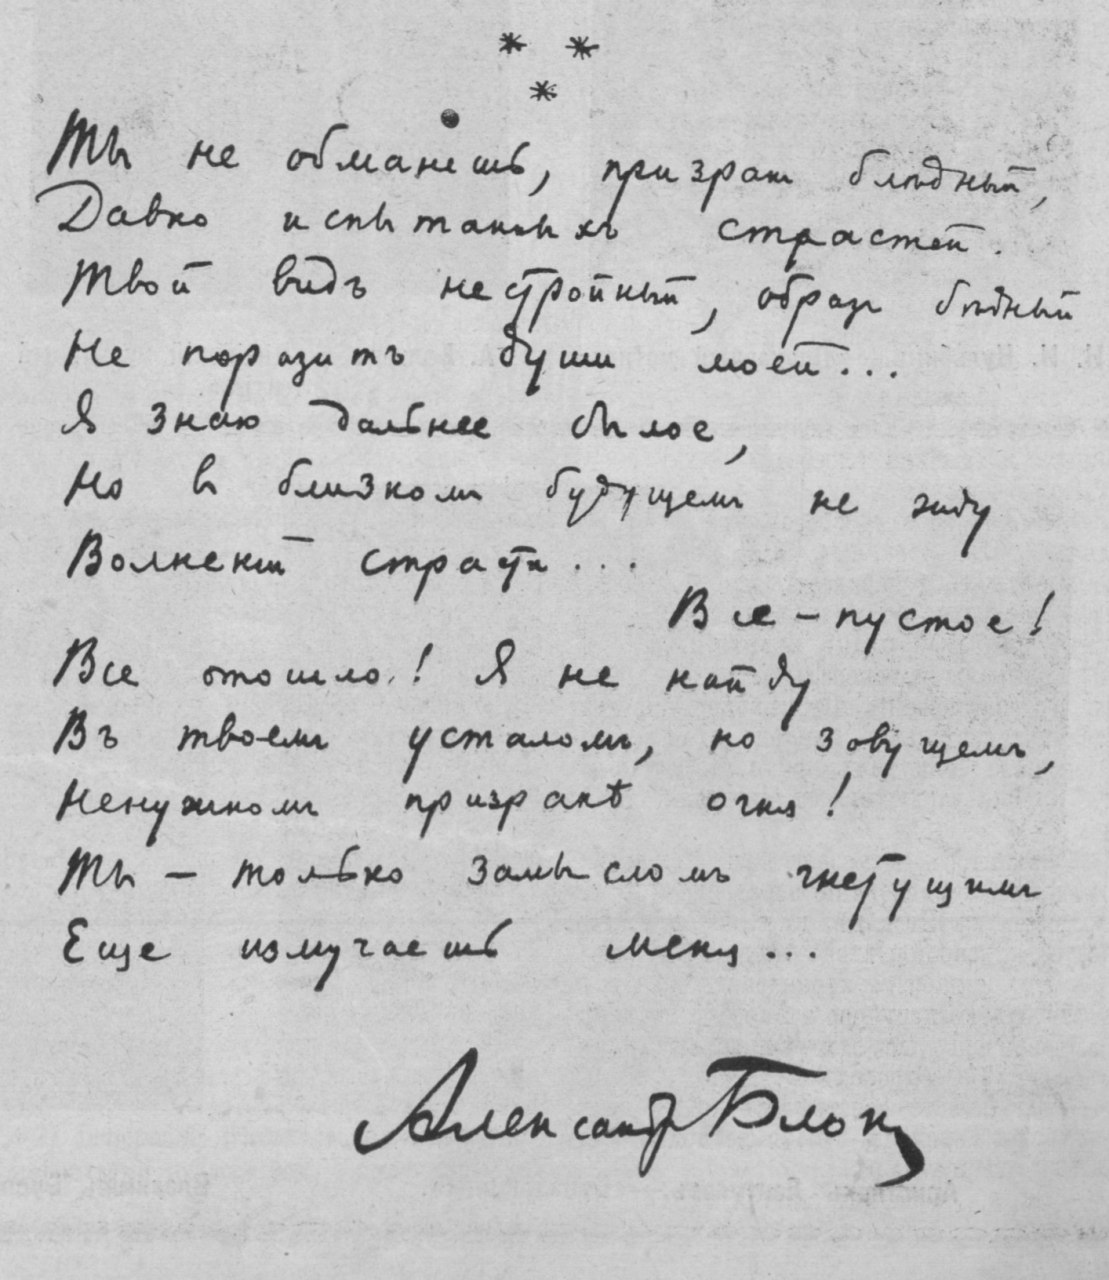 * *
*
Ты не обманешь, призракъ блѣдный,
Давно испытанныхъ страстей.
Твой видъ нестройный, образъ бѣдный
Не поразитъ души моей...
Я знаю дальнее былое,
Но въ близкомъ будущемъ не жду
Волнений страсти...
Все – пустое!
Все отошло! Я не найду
Въ твоемъ усталомъ, но зовущемъ,
Ненужномъ призракѣ огня!
Ты – только замысломъ гнетущимъ
Еще измучаешь меня...
Александръ Блокъ